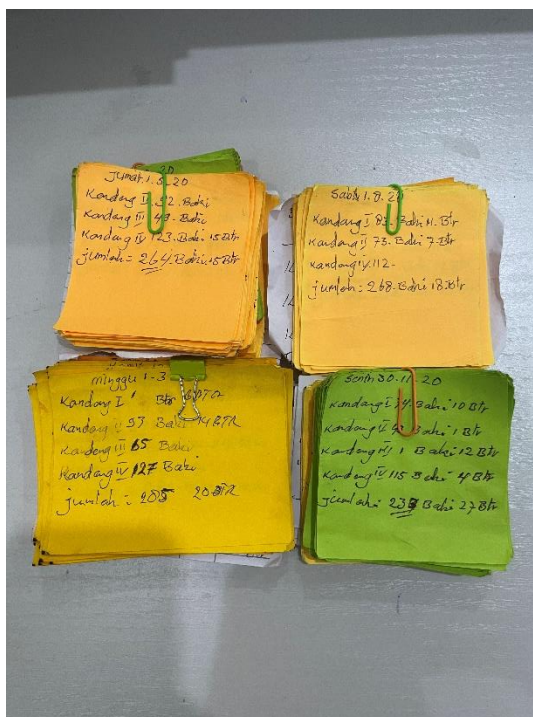 Jumat. 1. 5. 20
Kandang II 92. Baki
Kandang III 49. Baki
Kandang IV 123. Baki 15 Btr
jumlah = 264. Baki. 15 Btr
Sabtu 1. 8. 20
Kandang I 83 Baki 11. Btr
Kandang II 73. Baki 7. Btr
Kandang IV. 112.
jumlah = 268. Baki. 18. Btr
minggu 1-3
Kandang I Btr 6 BTR
Kandang II 93 Baki 14 BTR
Kandang III 65 Baki
Kandang IV 127 Baki
jumlah = 285 20 BTR
Senin 30. 11. 20
Kandang I Baki 10 Btr
Kandang II Baki 1 Btr
Kandang III 1 Baki 12 Btr
Kandang IV 115 Baki 4 Btr
jumlah = Baki 27 Btr